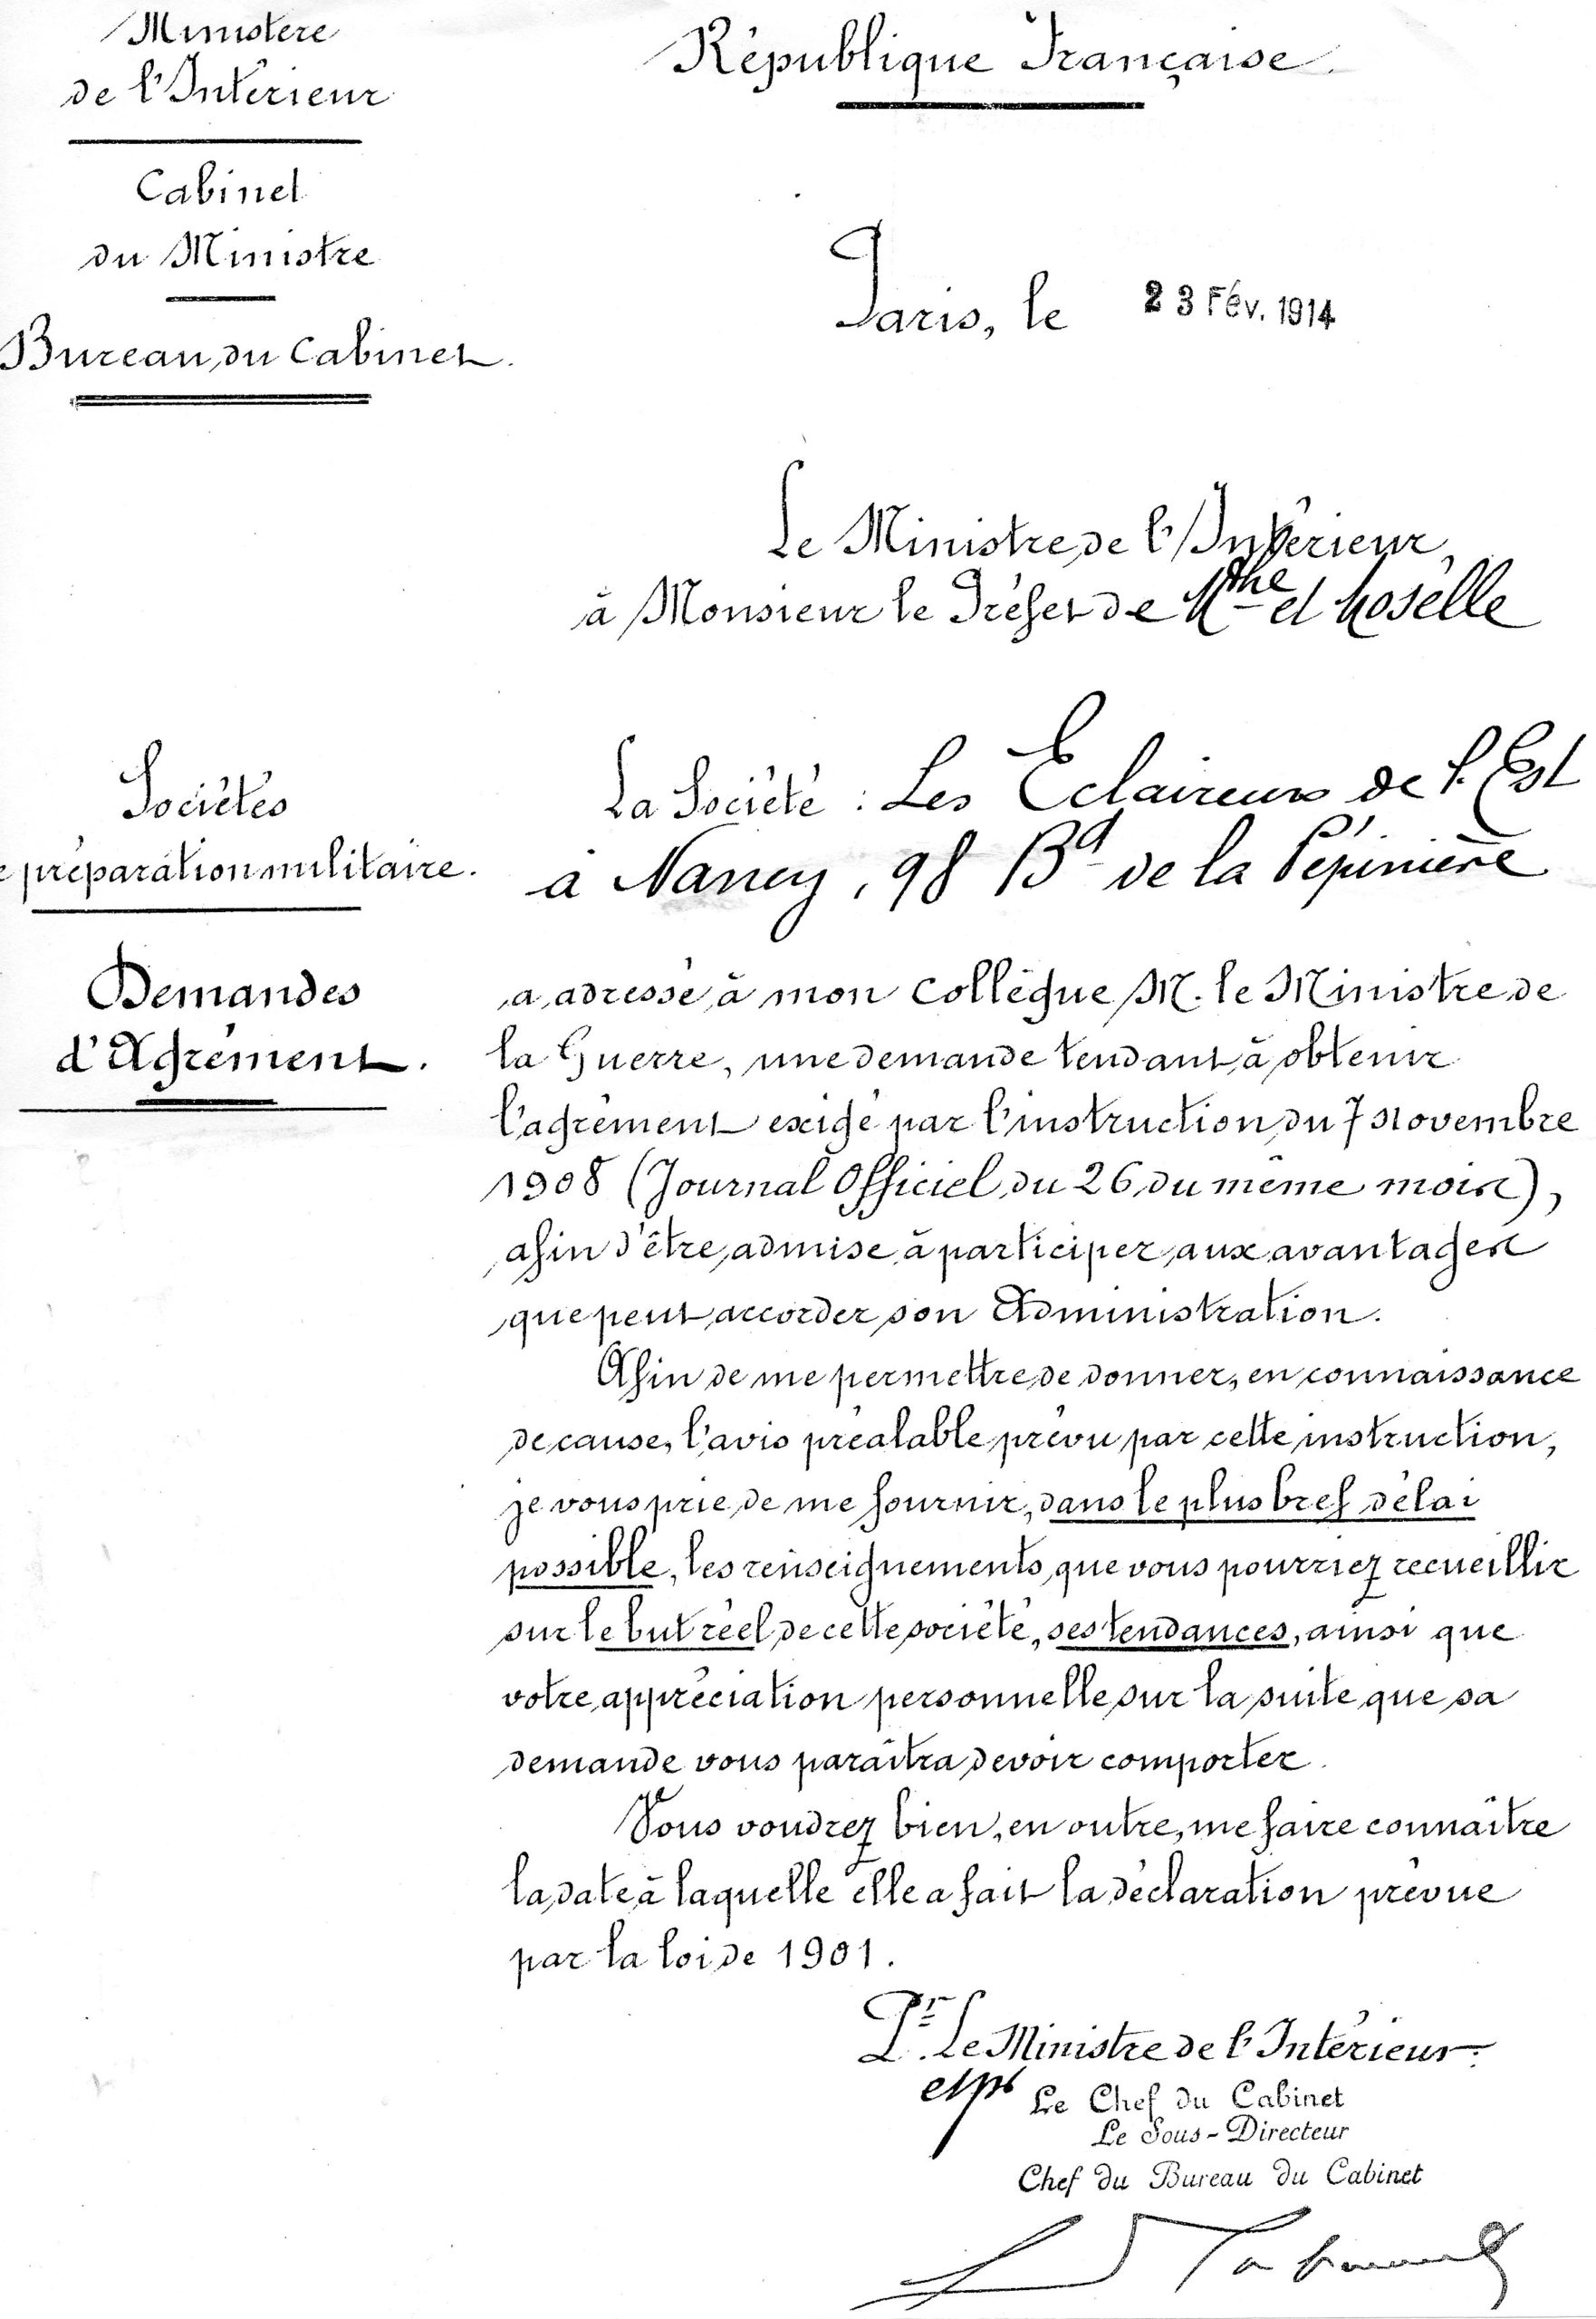 Ministère
de l'Intérieur
Cabinet
du Ministre
Bureau du Cabinet.
République Française.
Paris, le 23 Fév. 1914
Le Ministre de l'Intérieur,
à Monsieur le Préfet de Mthe et Moselle
Sociétés
préparation militaire.
Demandes
d'Agrément.
La Société : Les Eclaireurs de l'Est
à Nancy, 98 Bd de la Pépinière
a adressé à mon Collègue M. le Ministre de
la Guerre, une demande tendant à obtenir
l'agrément exigé par l'instruction du 7 Novembre
1908 (Journal Officiel du 26 du même mois),
afin d'être admise à participer aux avantages
que peut accorder son Administration.
Afin de me permettre de donner, en connaissance
de cause, l'avis préalable prévu par cette instruction,
je vous prie de me fournir, dans le plus bref délai
possible, les renseignements que vous pourriez recueillir
sur le but réel de cette société, ses tendances, ainsi que
votre appréciation personnelle sur la suite que sa
demande vous paraîtra devoir comporter.
Vous voudrez bien, en outre, me faire connaître
la date à laquelle elle a fait la déclaration prévue
par la loi de 1901.
Pr. Le Ministre de l'Intérieur.
et pr Le Chef du Cabinet
Le Sous-Directeur
Chef du Bureau du Cabinet